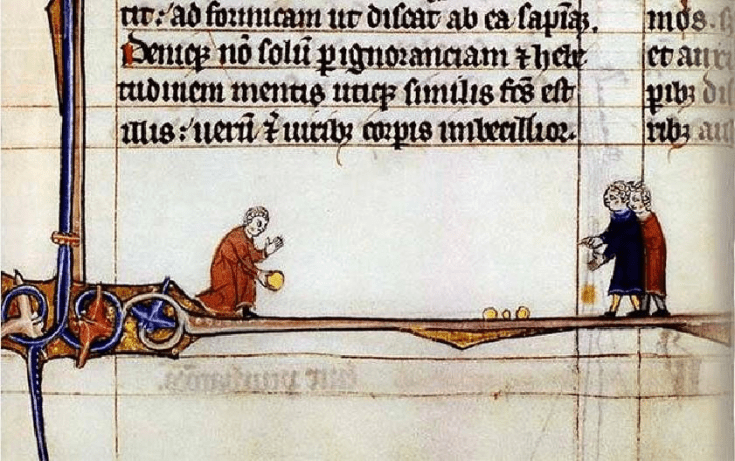 tit : ad formicam ut discat ab ea sapīaꝫ.
Deniqꝫ nō solū ꝑ ignoranciam ⁊ hebe
tudinem mentis utiqꝫ similis fc̄s est
illis : uerū ⁊ uiribꝫ corꝑis imbecillior.
mos.
et
pibꝫ
ribꝫ